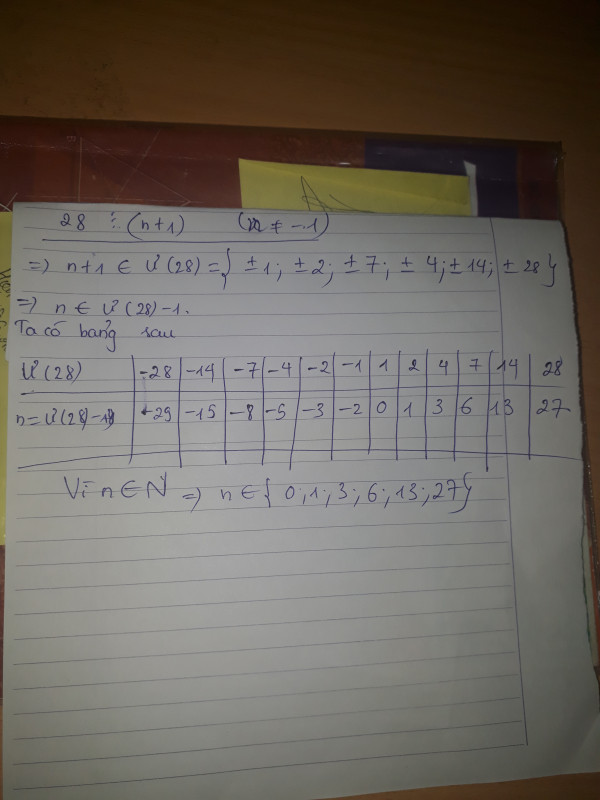 28 ⋮ (n+1) (n ≠ -1)
=> n+1 ∈ Ư(28) = { ±1; ±2; ±7; ±4; ±14; ±28}
=> n ∈ Ư(28)-1.
Ta có bảng sau
Ư(28) -28 -14 -7 -4 -2 -1 1 2 4 7 14 28
n=Ư(28)-1 -29 -15 -8 -5 -3 -2 0 1 3 6 13 27
Vì n ∈ N => n ∈ { 0; 1; 3; 6; 13; 27}